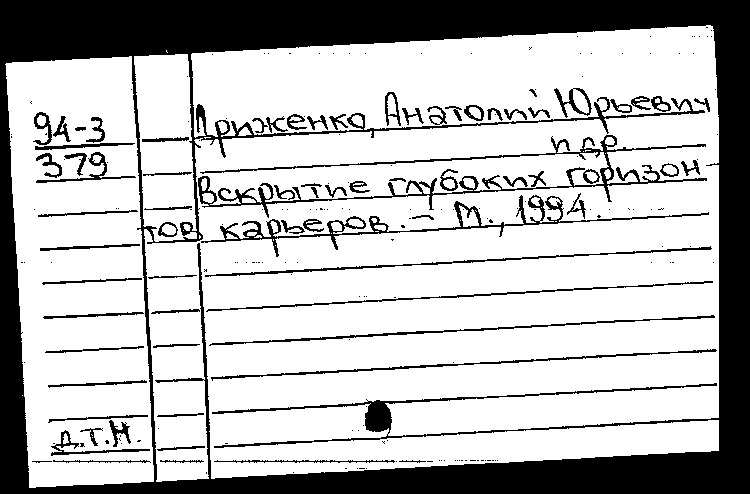 94-3
379
Дриженко, Анатолий Юрьевич
и др.
Вскрытие глубоких горизон
тов карьеров. – М., 1994.
д.т.н.